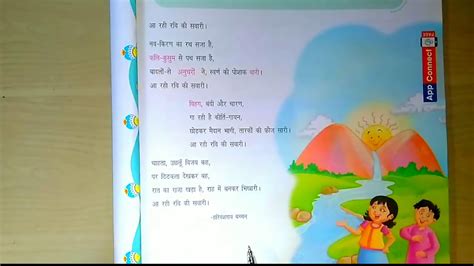 आ रही रवि की सवारी।
नव-किरण का रथ सजा है,
कलि-कुसुम से पथ सजा है,
बादलों-से अनुचरों ने, स्वर्ण की पोशाक धारी।
आ रही रवि की सवारी।
विहग, बंदी और चारण,
गा रहे हैं कीर्ति-गायन,
छोड़कर मैदान भागी, तारकों की फ़ौज सारी।
आ रही रवि की सवारी।
चाहता, उछलूँ विजय कह,
पर ठिठकता देखकर यह,
रात का राजा खड़ा है, राह में बनकर भिखारी।
आ रही रवि की सवारी।
-हरिवंशराय बच्चन
App Connect